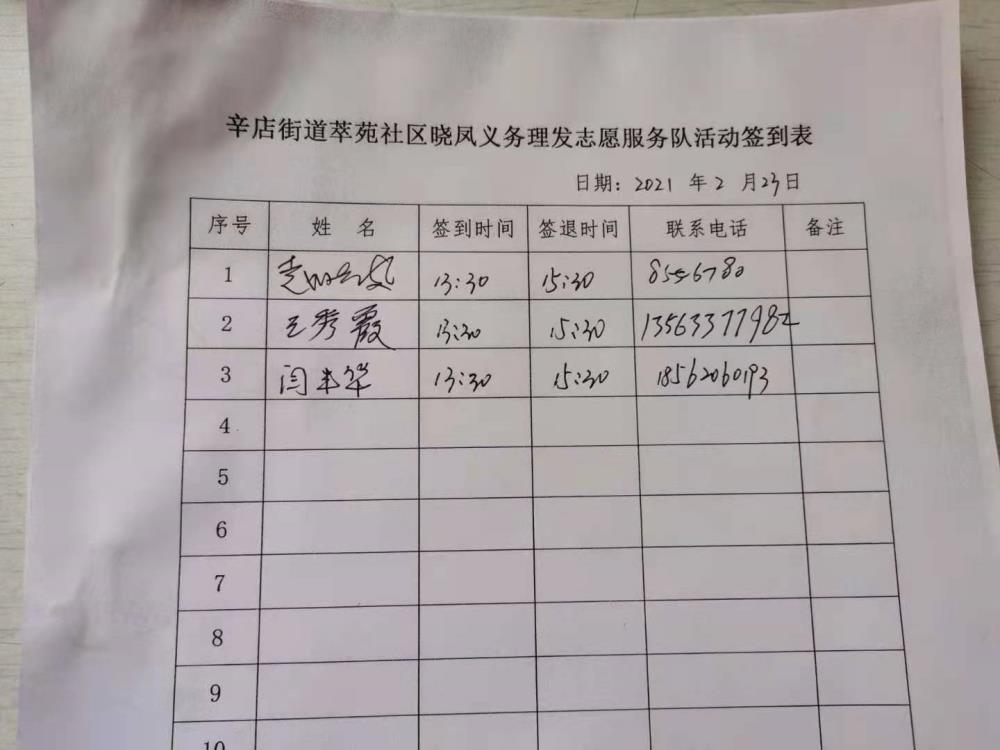 辛店街道萃苑社区晓凤义务理发志愿服务队活动签到表
日期：2021 年 2 月 23 日
序号 姓 名 签到时间 签退时间 联系电话 备注
1 13:30 15:30 8556780
2 王秀霞 13:30 15:30 13563377982
3 闫丰华 13:30 15:30 18562060193
4
5
6
7
8
9
10